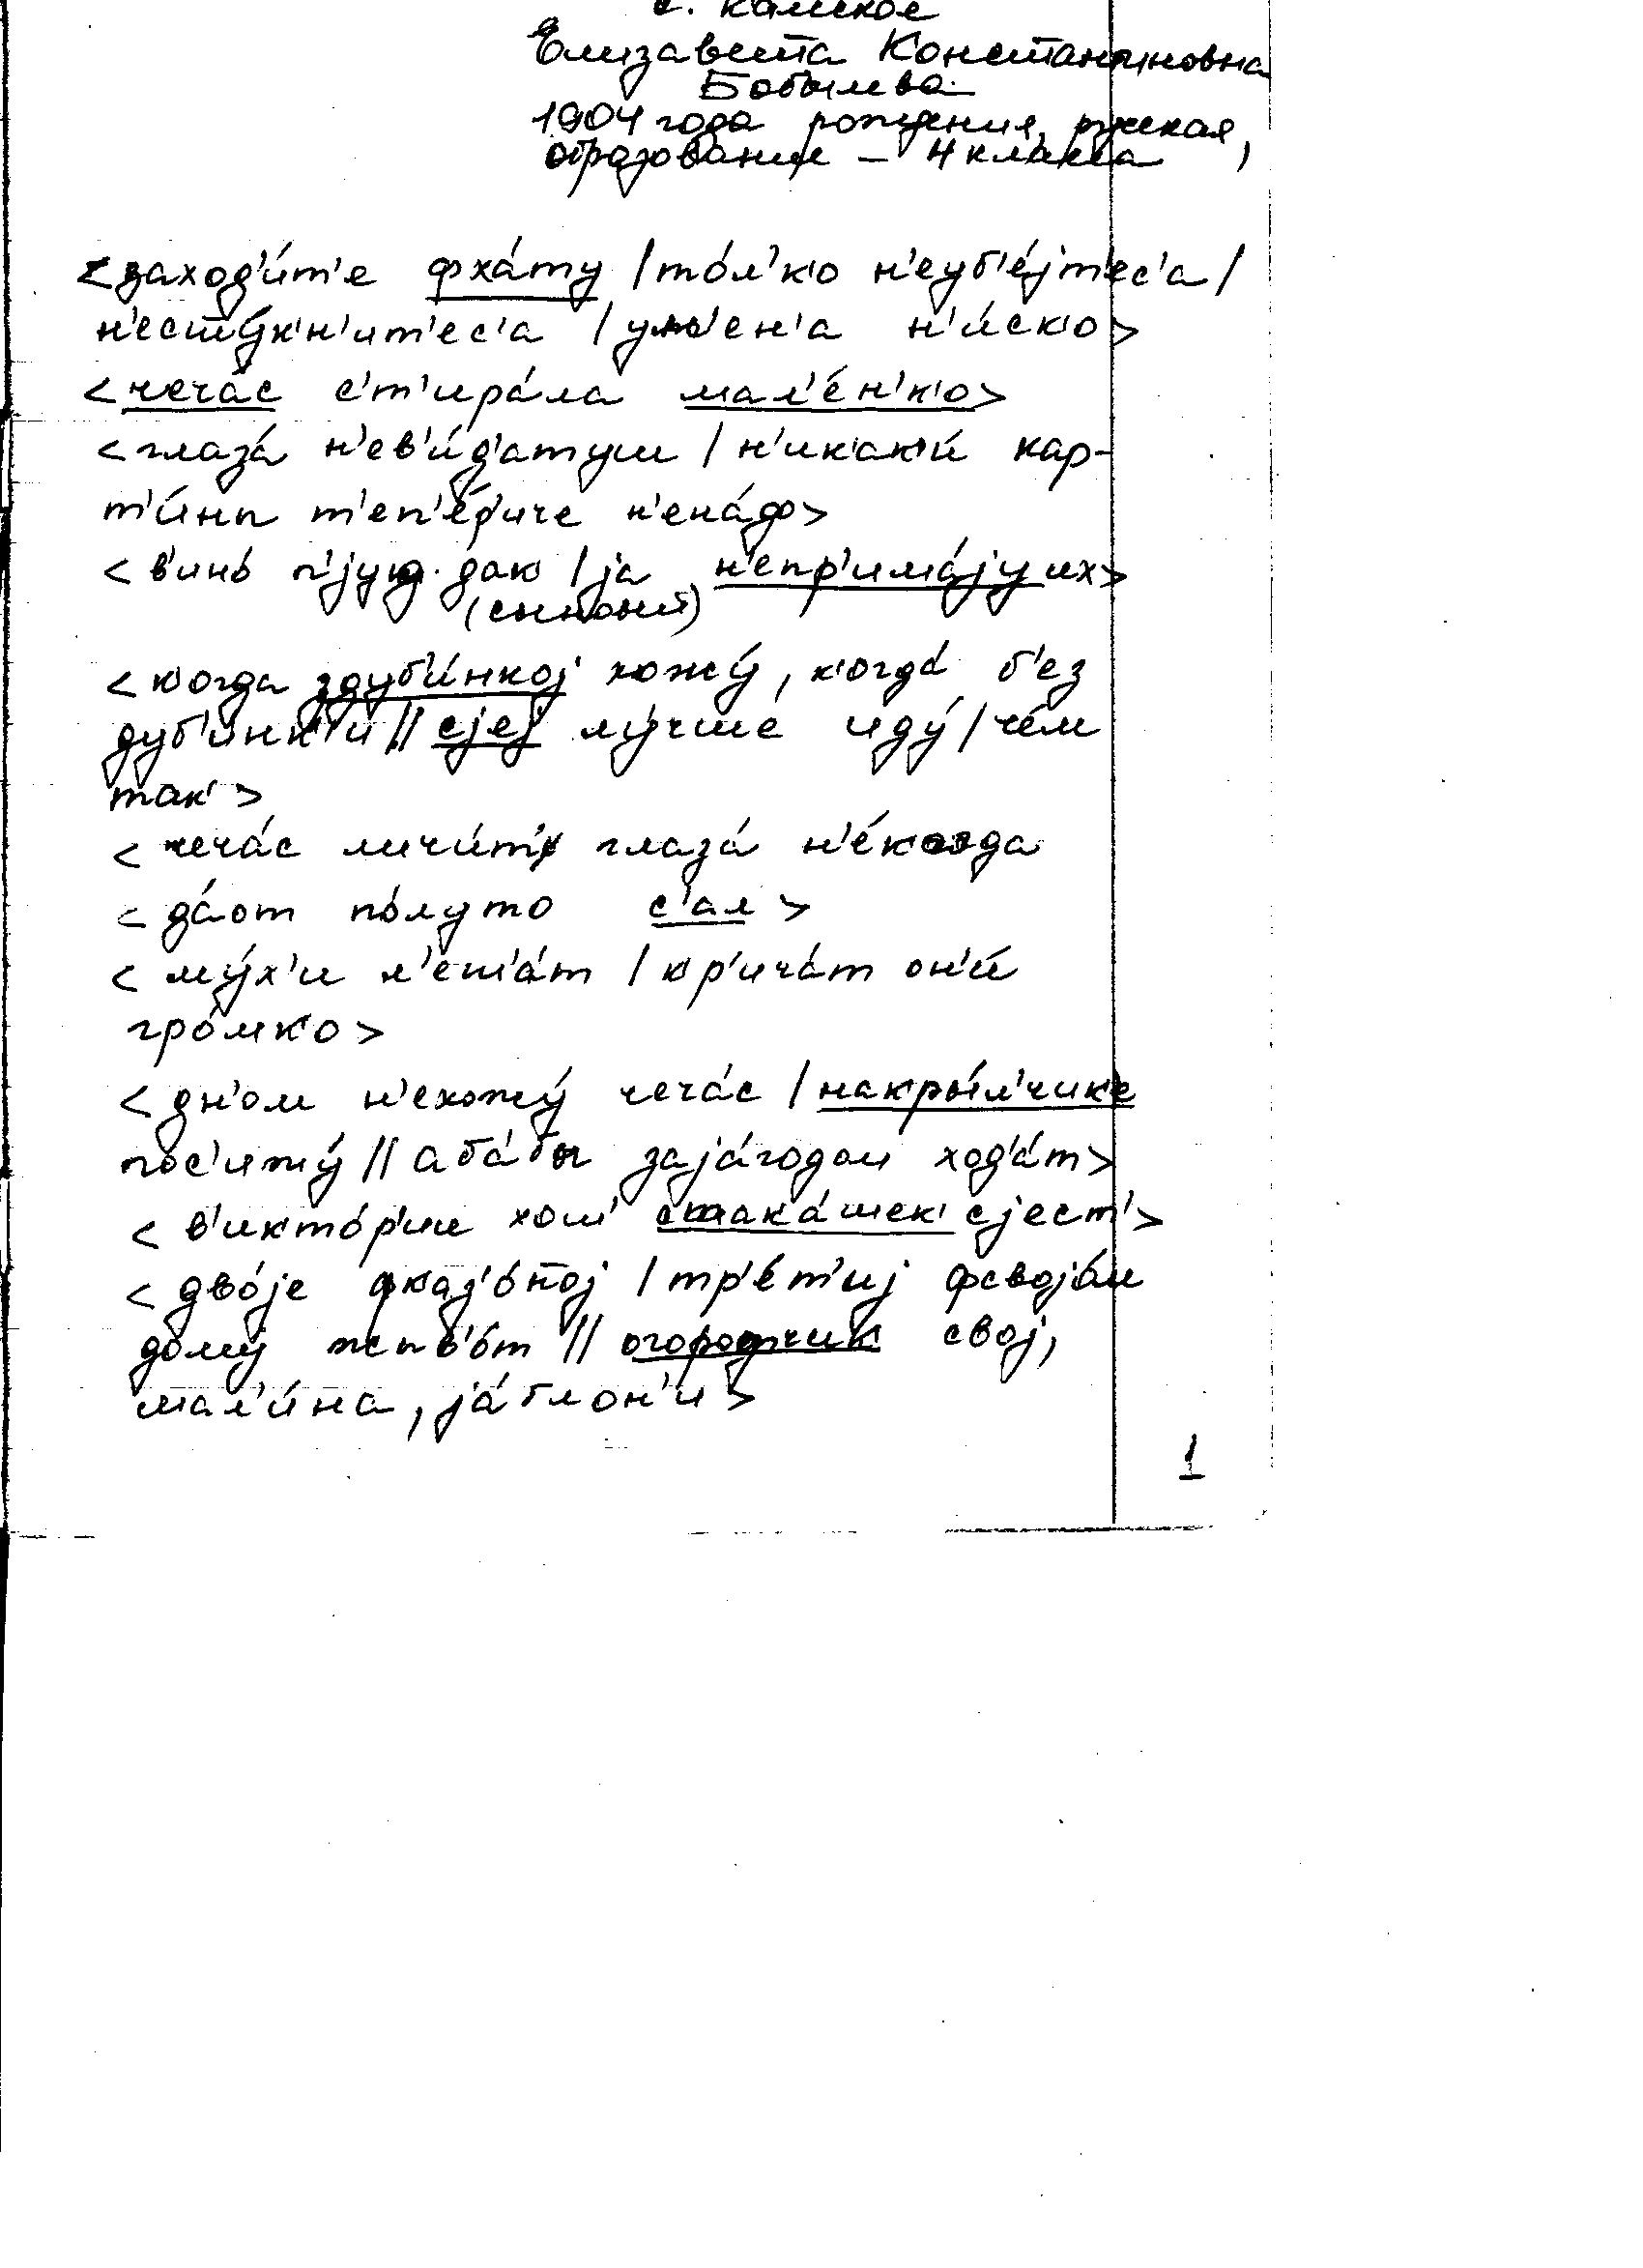 с. Камское
Елизавета Константиновна
Бобылева
1904 года рождения, русская,
образование – 4 класса
<заход'и́т'е фха́ту /то́л'к'о н'еуб'е́јт'ес'а/
н'есту́к'н'ит'ес'а /ум'ен'а н'и́ск'о>
<чеча́с с'т'ира́ла мал'е́н'к'о>
<глаза́ н'ев'и́д'атум / н'ика́к'и́ кар-
т'и́нп т'еп'е́р'иче н'ена́до>
<в'ино́ п'јут дак /ја н'епр'има́ју их>
(сыновей)
<когда здуб'и́нкој хожу́, когда́ б'ез
дуб'и́нк'и // сјеј лу́чше иду́ /че́м
так'>
<чеча́с личи́т' глаза́ н'е́когда
<да́от по́луто с'ал>
<му́х'и м'еша́т / кр'ича́т он'и́
гро́мк'о>
<дн'ом н'ехожу́ чеча́с /накры́л'чик'е
пос'ижу́ // аба́бы заја́годом ход'а́т>
<в'икто́р'ии хош' стака́шек' сјест'>
<дво́је фказ'о́ној /тр'е́т'иј фсвоја́м
дому́ жпв'о́т // огоро́тчик свој,
мал'и́на, ја́блон'и>
1